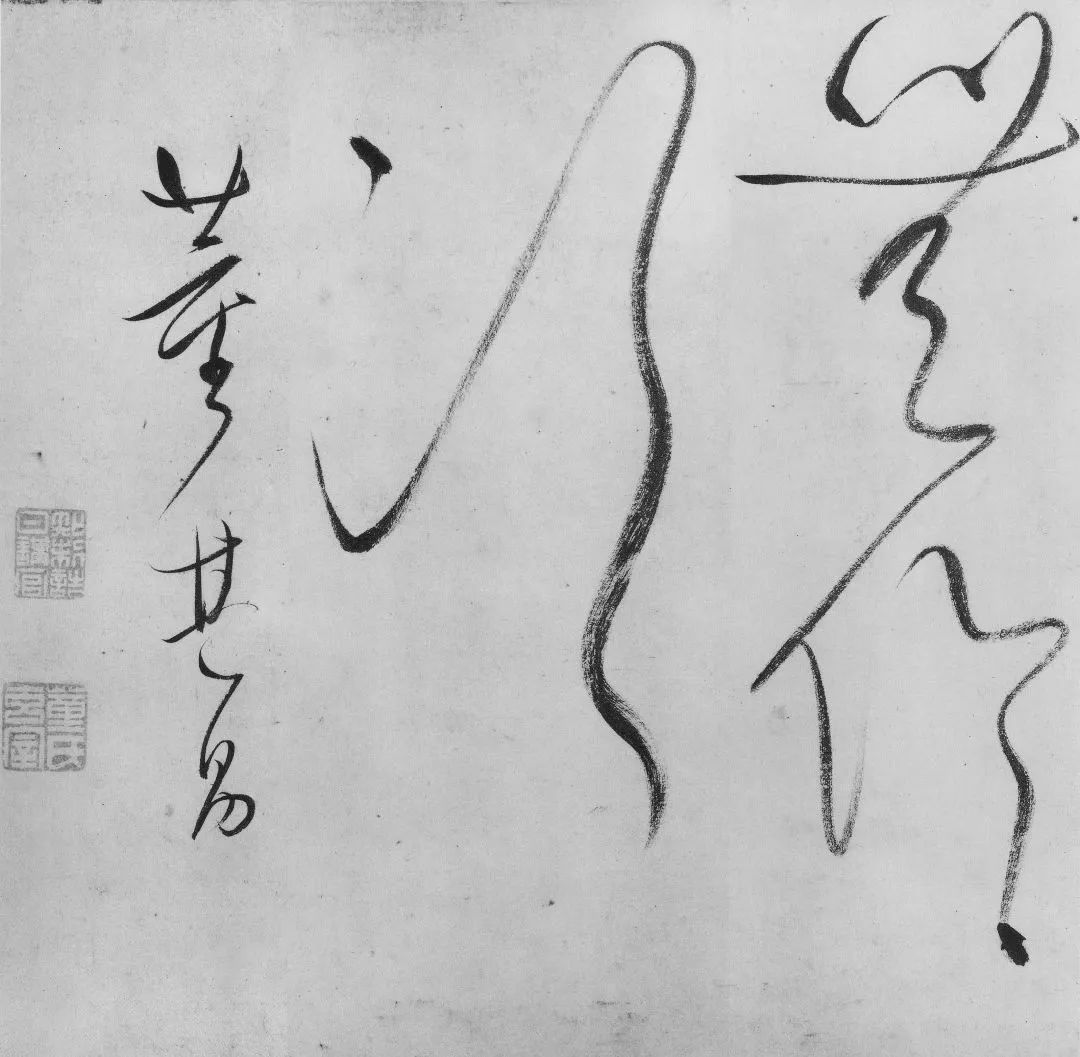 無倫
次
董其昌
知制誥日講官
董氏玄宰